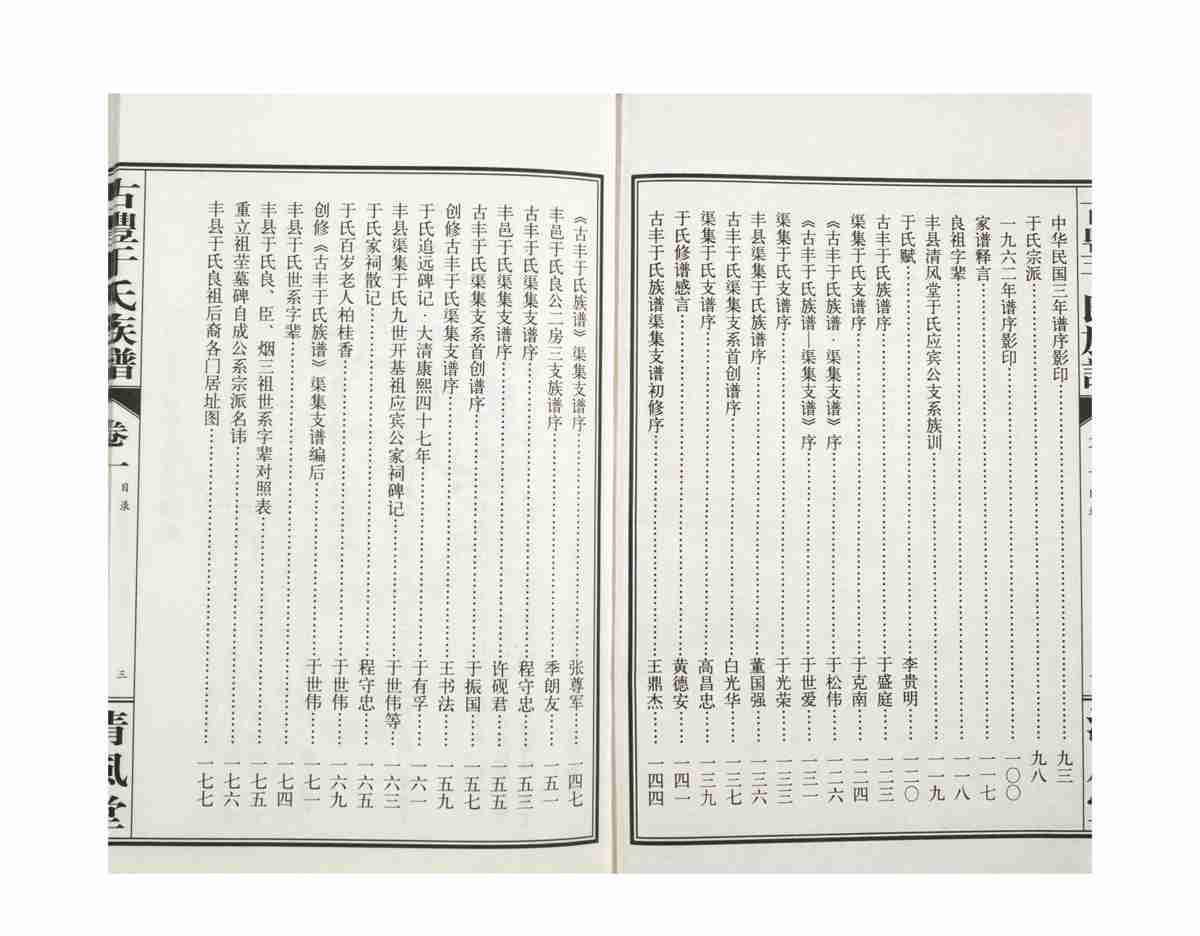 中华民国三年谱序影印 九三
于氏宗派 九八
一九六二年谱序影印 一〇〇
家谱释言 一一七
良祖字辈 一一八
丰县清风堂于氏应宾公支系族训 一一九
于氏赋 李贵明 一二〇
古丰于氏族谱序 于盛庭 一二三
渠集于氏支谱序 于克南 一二四
《古丰于氏族谱·渠集支谱》序 于松伟 一二六
《古丰于氏族谱—渠集支谱》序 于世爱 一三一
渠集于氏支谱序 于光荣 一三三
丰县渠集于氏族谱序 董国强 一三六
古丰于氏渠集支系首创谱序 白光华 一三七
渠集于氏支谱序 高昌忠 一三九
于氏修谱感言 黄德安 一四一
古丰于氏族谱渠集支谱初修序 王鼎杰 一四四
《古丰于氏族谱》渠集支谱序 张尊军 一四七
丰邑于氏良公二房三支族谱序 季朗友 一五一
古丰于氏渠集支谱序 程守忠 一五三
丰邑于氏渠集支谱序 许砚君 一五五
古丰于氏渠集支系首创谱序 于振国 一五七
创修古丰于氏渠集支谱序 王书法 一五九
于氏追远碑记·大清康熙四十七年 于有孚 一六一
丰县渠集于氏九世开基祖应宾公家祠碑记 于世伟等 一六三
于氏家祠散记 程守忠 一六五
于氏百岁老人柏桂香 于世伟 一六九
创修《古丰于氏族谱》渠集支谱编后 于世伟 一七一
丰县于氏世系字辈 一七四
丰县于氏良、臣、烟三祖世系字辈对照表 一七五
重立祖茔墓碑自成公系宗派名讳 一七六
丰县于氏良祖后裔各门居址图 一七七
古豐于氏族譜 卷一 目录 三 清風堂